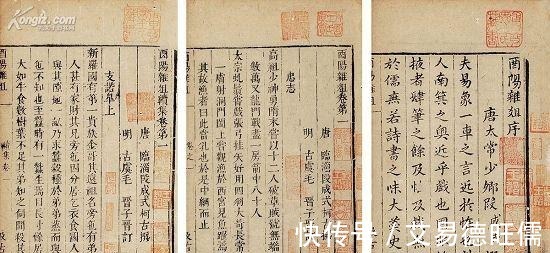 酉陽雜俎序
唐太常少卿段成
夫易象一車之言近於怪也
人南箕之興近乎戲也固
披者肆筆之餘及怪及戲
於儒無若詩書之味大羹史
酉陽雜俎卷第一
唐 臨淄段成式柯古撰
明 古虞毛 晉子晉訂
忠志
高祖少神勇隋末嘗以十二人破草賊號無端
數萬又龍門戰盡一房箭中八十人
太宗虬鬚嘗戲張弓挂矢好用四羽大笴長常
箭一膚射洞門闔上嘗觀漁於西宮見魚躍焉問
其故漁者曰此當乳也於是中網而止
酉陽雜俎
卷之一
汲古
酉陽雜俎續集卷第一
唐 臨淄段成式柯古撰
明 古虞毛 晉子晉訂
支諾皋上
新羅國有第一貴族金哥其遠祖名旁㐌有弟一
人甚有家財其兄旁㐌因分居乞衣食國人有
與其隙地一畝乃求蠶穀種於弟弟蒸而與之
㐌不知也至蠶時有一蠶生焉日長寸餘居旬
大如牛食數樹葉不足其弟
續集卷一
汲古
快传号 / 艾易德旺儒